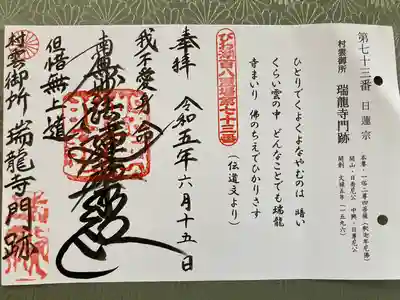 第七十三番　日蓮宗
村雲御所　瑞龍寺門跡
本尊・一塔二尊四菩薩（釈迦牟尼佛）
開山・日秀尼公　中興・日尊尼公
開創・文禄五年（一五九六）
ひとりでくよくよなやむのは　暗い
くらい雲の中　どんなことでも瑞龍
寺まいり　佛のちえでひかりさす
（伝道文より）
びわ湖百八霊場第七十三番
奉拝　令和五年六月十五日
我不愛身命
南無妙法蓮華経
但惜無上道
村雲御所　瑞龍寺門跡